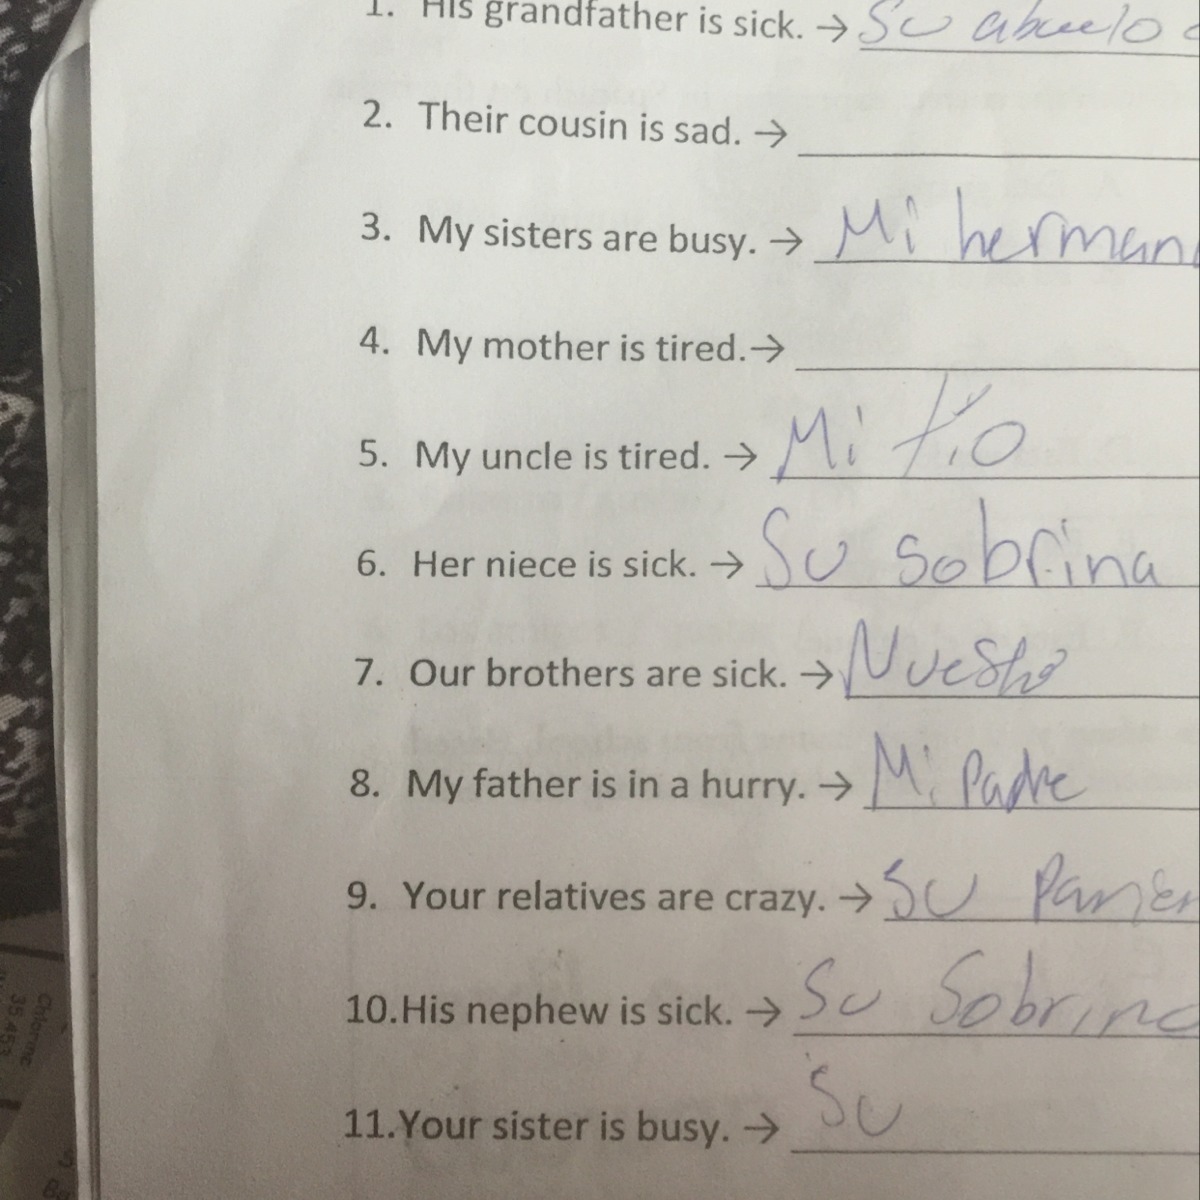 1. His grandfather is sick. → Su abuelo
2. Their cousin is sad. →
3. My sisters are busy. → Mi herman
4. My mother is tired.→
5. My uncle is tired. → Mi tío
6. Her niece is sick. → Su sobrina
7. Our brothers are sick. → Nuestro
8. My father is in a hurry. → Mi Padre
9. Your relatives are crazy. → Su Parien
10.His nephew is sick. → Su Sobrino
11.Your sister is busy. → Su
Chlorine
35.453